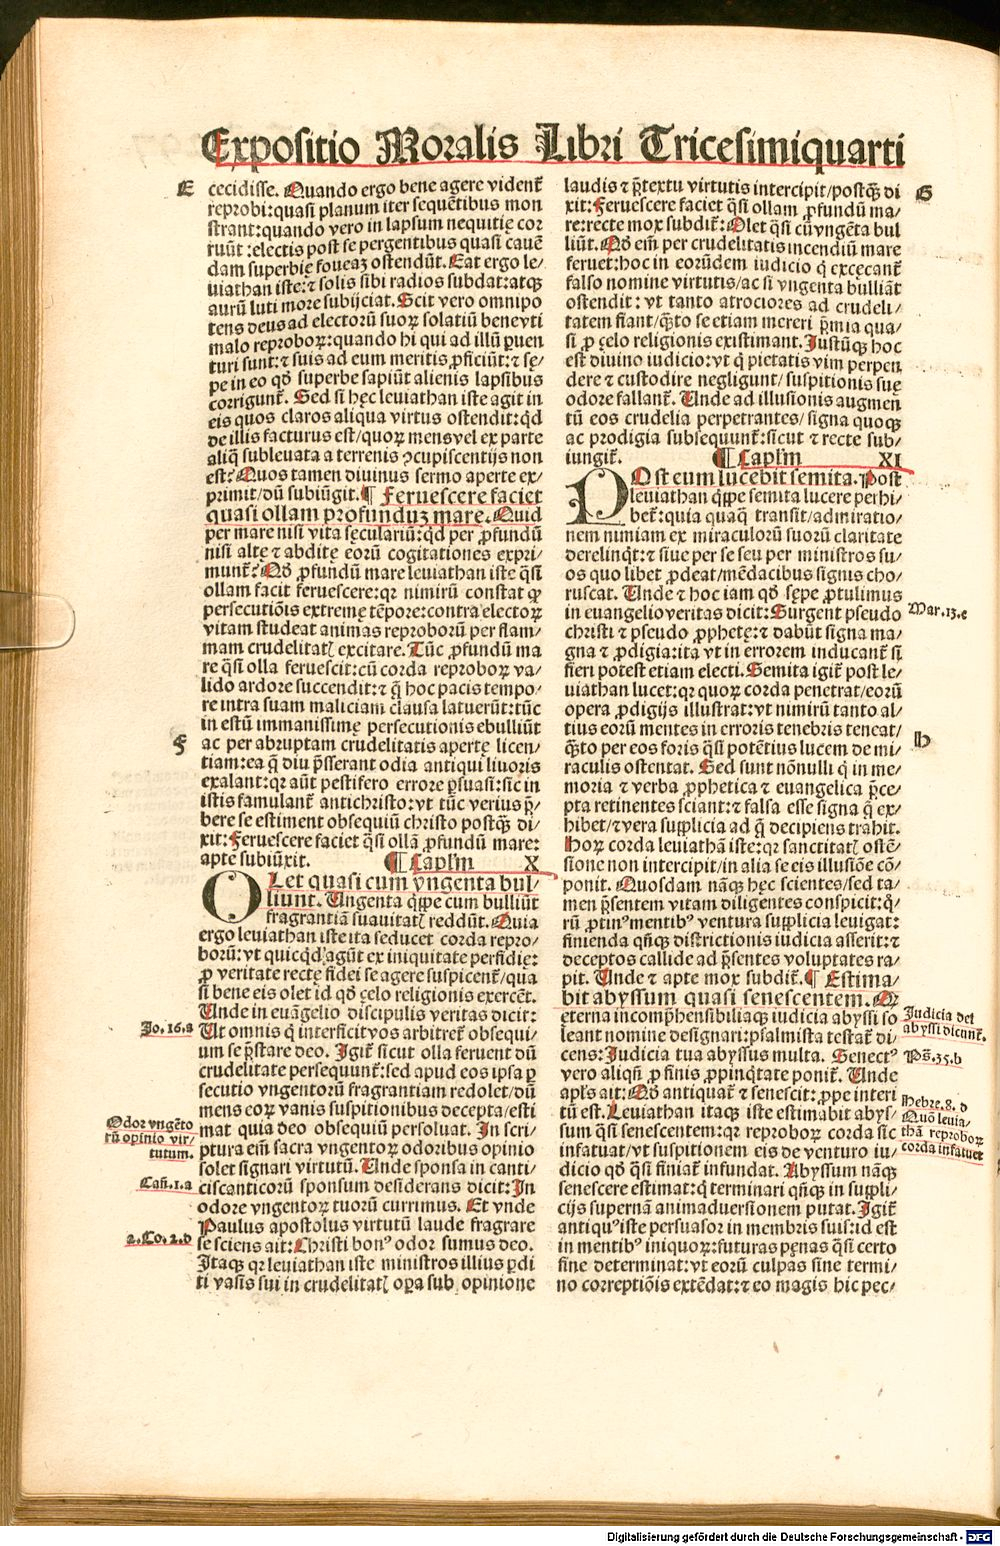 Expositio Moralis Libri Tricesimiquarti
E
cecidisse. Quando ergo bene agere vident᷑
reprobi: quasi planum iter sequẽtibus mon
strant: quando vero in lapsum nequitię cor
ruũt: electis post se pergentibus quasi cauẽ
dam superbię foueaꝫ ostendũt. Eat ergo le/
uiathan iste: ⁊ solis sibi radios subdat: atqꝫ
aurũ luti more subijciat. Scit vero omnipo
tens deus ad electorũ suoꝝ solatiũ bene vti
malo reproboꝝ: quando hi qui ad illũ ꝑuen
turi sunt: ⁊ suis ad eum meritis ꝓficiũt: ⁊ sę/
pe in eo qđ superbe sapiũt alienis lapsibus
corrigunt᷑. Sed si hęc leuiathan iste agit in
eis quos claros aliqua virtus ostendit: qͥd
de illis facturus est/quoꝝ mens vel ex parte
aliq̃ subleuata a terrenis ꝯcupiscentijs non
est? Quos tamen diuinus sermo aperte ex/
primit/dũ subiũgit. ¶ Feruescere faciet
quasi ollam profunduꝫ mare. Quid
per mare nisi vita sęculariũ: qͥd per ꝓfundũ
nisi altę ⁊ abditę eorũ cogitationes expri/
munt᷑? Qđ ꝓfundũ mare leuiathan iste q̃si
ollam facit feruescere: qꝛ nimirũ constat ꝙ
persecutiõis extremę tẽpore: contra electoꝝ
vitam studeat animas reproborũ per flam/
mam crudelitatꝭ excitare. Tũc ꝓfundũ ma
re q̃si olla feruescit: cũ corda reproboꝝ va/
lido ardore succendit: ⁊ q̃ hoc pacis tempo/
re intra suam maliciam clausa latuerũt: tũc
in estũ immanissimę persecutionis ebulliũt
F
ac per abruptam crudelitatis apertę licen/
tiam: ea q̃ diu p̃sserant odia antiqui liuoris
exalant: qꝛ aũt pestifero errore ꝑsuasi: sic in
istis famulant᷑ antichristo: vt tũc verius p̃/
bere se estiment obsequiũ christo postqꝫ di/
xit: Feruescere faciet q̃si ollã ꝓfundũ mare:
apte subiũxit. ¶ Caplm X
OLet quasi cum vngenta bul/
liunt. Ungenta q̃ppe cum bulliũt
fragrantiã suauitatꝭ reddũt. Quia
ergo leuiathan iste ita seducet corda repro/
borũ: vt quicqͥd agũt ex iniquitate perfidię:
ꝓ veritate rectę fidei se agere suspicent᷑/qua
si bene eis olet id qđ ęelo religionis exercẽt.
Unde in euãgelio discipulis veritas dicit:
Jo.16.a
Ut omnis q̇ interficit vos arbitret᷑ obsequi/
um se p̃stare deo. Igit᷑ sicut olla feruent dũ
crudelitate persequunt᷑: sed apud eos ipsa ꝑ
secutio vngentorũ fragrantiam redolet/dũ
mens eoꝝ vanis suspitionibus decepta/esti
Odor vngẽto
rũ opinio vir/
tutum.
mat quia deo obsequiũ persoluat. In scri/
ptura em̃ sacra vngentoꝝ odoribus opinio
solet signari virtutũ. Unde sponsa in canti/
Cañ.1.a
cis canticorũ sponsum desiderans dicit: In
odore vngentoꝝ tuorũ currimus. Et vnde
Paulus apostolus virtutũ laude fragrare
2.Co.2.d
se sciens ait: Christi bonꝰ odor sumus deo.
Itaqꝫ qꝛ leuiathan iste ministros illius ꝑdi
ti vasis sui in crudelitatꝭ oꝑa sub opinione
laudis ⁊ p̃textu virtutis intercipit/postqꝫ di
G
xit: Feruescere faciet q̃si ollam ꝓfundũ ma/
re: recte mox subdit᷑: Olet q̃si cũ vngẽta bul
liũt. Qđ em̃ per crudelitatis incendiũ mare
feruet: hoc in eorũdem iudicio q̇ excęcant᷑
falso nomine virtutis/ac si vngenta bulliãt
ostendit: vt tanto atrociores ad crudeli/
tatem fiant/q̃to se etiam mereri p̃mia qua/
si ꝓ ęelo religionis existimant. Justũqꝫ hoc
est diuino iudicio: vt q̇ pietatis vim perpen
dere ⁊ custodire negligunt/suspitionis suę
odore fallant᷑. Unde ad illusionis augmen
tũ eos crudelia perpetrantes/signa quoqꝫ
ac prodigia subsequunt᷑: sicut ⁊ recte sub/
iungit᷑. ¶ Caplm XI
POst eum lucebit semita. Post
leuiathan q̃ppe semita lucere perhi/
bet᷑: quia quaq̃ transit/admiratio/
nem nimiam ex miraculorũ suorũ claritate
derelinqͥt: ⁊ siue per se seu per ministros su/
os quo libet ꝓdeat/mẽdacibus signis cho/
ruscat. Unde ⁊ hoc iam qđ sępe ꝓtulimus
in euangelio veritas dicit: Surgent pseudo
Mar.13.c
christi ⁊ pseudo ꝓphetę: ⁊ dabũt signa ma/
gna ⁊ ꝓdigia: ita vt in errorem inducant᷑ si
fieri potest etiam electi. Semita igit᷑ post le/
uiathan lucet: qꝛ quoꝝ corda penetrat/eorũ
opera ꝓdigijs illustrat: vt nimirũ tanto al/
tius eorũ mentes in erroris tenebris teneat/
q̃to per eos foris q̃si potẽtius lucem de mi/
H
raculis ostentat. Sed sunt nõnulli q̇ in me/
moria ⁊ verba ꝓphetica ⁊ euangelica p̃ce/
pta retinentes sciant: ⁊ falsa esse signa q̃ ex/
hibet/⁊ vera supplicia ad q̃ decipiens trahit.
Hoꝝ corda leuiathã iste: qꝛ sanctitatꝭ ostẽ/
sione non intercipit/in alia se eis illusiõe cõ/
ponit. Quosdam nãqꝫ hęc scientes/sed ta/
men p̃sentem vitam diligentes conspicit: q̇/
rũ ꝓtinꝰ mentibꝰ ventura supplicia leuigat:
finienda qñqꝫ districtionis iudicia asserit: ⁊
deceptos callide ad p̃sentes voluptates ra/
pit. Unde ⁊ apte mox subdit᷑. ¶ Estima/
bit abyssum quasi senescentem. Qꝛ
eterna incomp̃hensibiliaqꝫ iudicia abyssi so
Judicia dei
abyssi dicunt᷑.
leant nomine designari: psalmista testat᷑ di/
cens: Judicia tua abyssus multa. Senectꝰ
Ps.35.b
vero aliqñ ꝓ finis ꝓpinq̃tate ponit᷑. Unde
apl̃s ait: Qđ antiquat᷑ ⁊ senescit: ꝓpe interi
Hebre.8.d
tũ est. Leuiathan itaqꝫ iste estimabit abys/
Quõ leuia/
sum q̃si senescentem: qꝛ reproboꝝ corda sic
thã reproboꝝ
infatuat/vt suspitionem eis de venturo iu/
corda infatuet
dicio qđ q̃si finiat᷑ infundat. Abyssum nãqꝫ
senescere estimat: q̇ terminari qñqꝫ in suppli/
cijs supernã animaduersionem putat. Igit᷑
antiquꝰ iste persuasor in membris suis: id est
in mentibꝰ iniquoꝝ: futuras pęnas q̃si certo
fine determinat: vt eorũ culpas sine termi/
no correptiõis extẽdat: ⁊ eo magis hic pec/
Digitalisierung gefördert durch die Deutsche Forschungsgemeinschaft - DFG